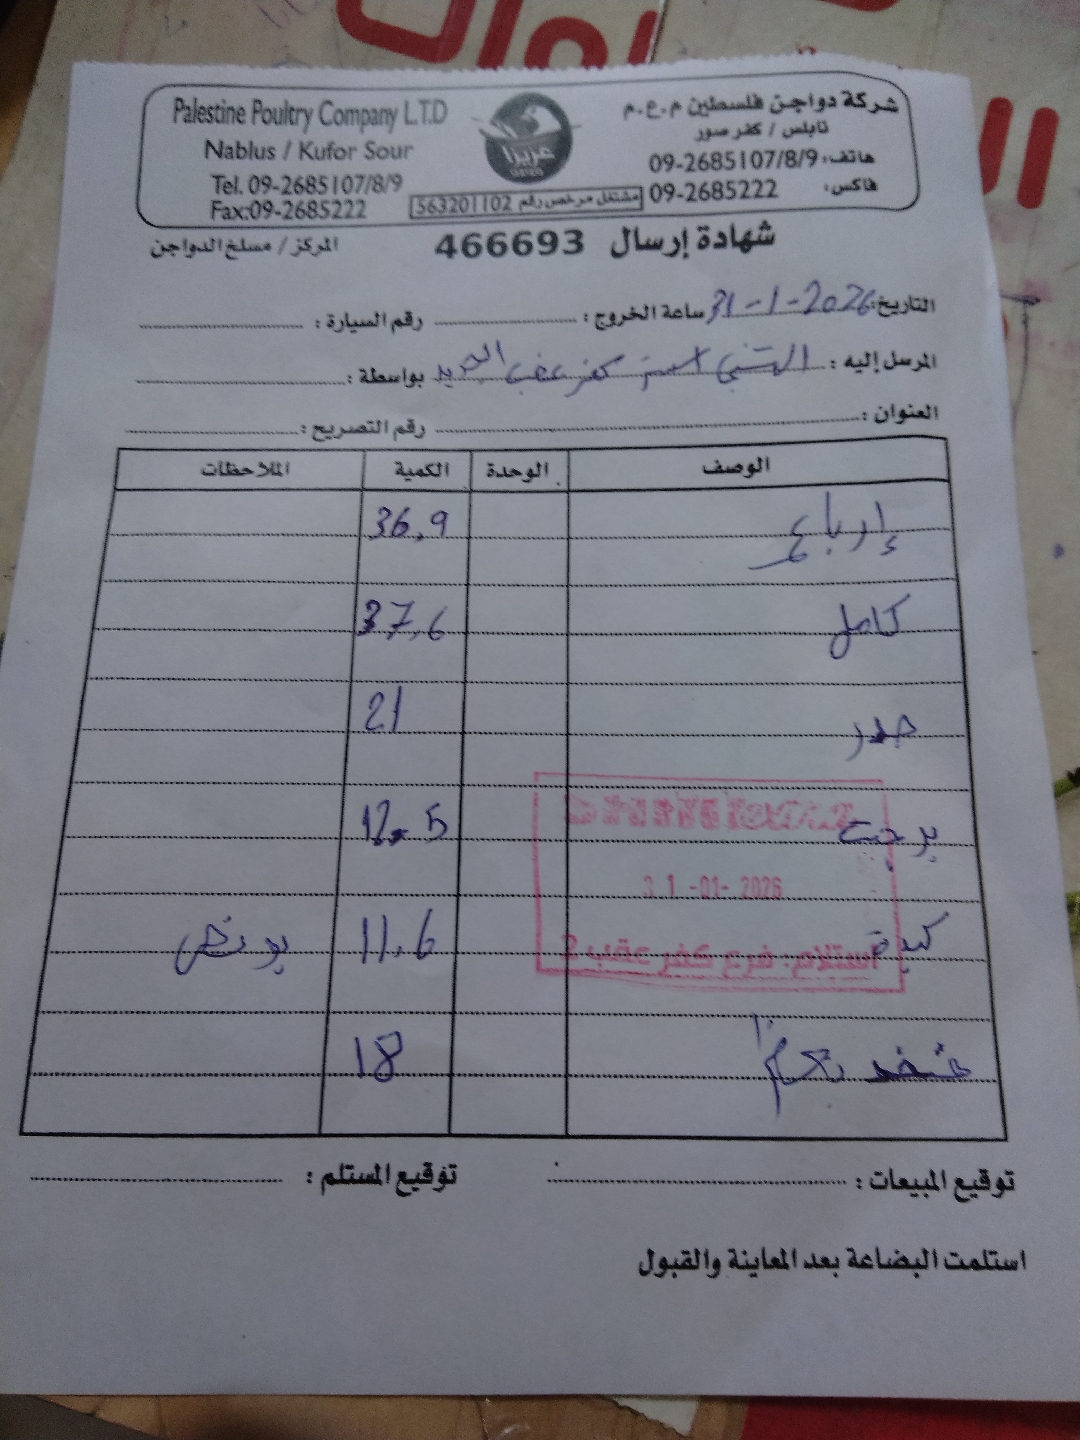 Palestine Poultry Company L.T.D
Nablus / Kufor Sour
Tel. 09-2685107/8/9
Fax:09-2685222
عزيزا
شركة دواجن فلسطين م.ع.م
نابلس / كفر صور
هاتف: 09-2685107/8/9
فاكس: 09-2685222
مشتغل مرخص رقم 563201102
شهادة إرسال 466693
المركز / مسلخ الدواجن
التاريخ: 31-1-2026 ساعة الخروج: رقم السيارة:
المرسل إليه: كفر عقب الجديد بواسطة:
العنوان: رقم التصريح:
الوصف الوحدة الكمية الملاحظات
إرباع 36,9
كامل 37,6
صدر 21
12.5
31-01-2026
كبدة 11,6
استلام: فرع كفر عقب 2
18
توقيع المبيعات: توقيع المستلم:
استلمت البضاعة بعد المعاينة والقبول